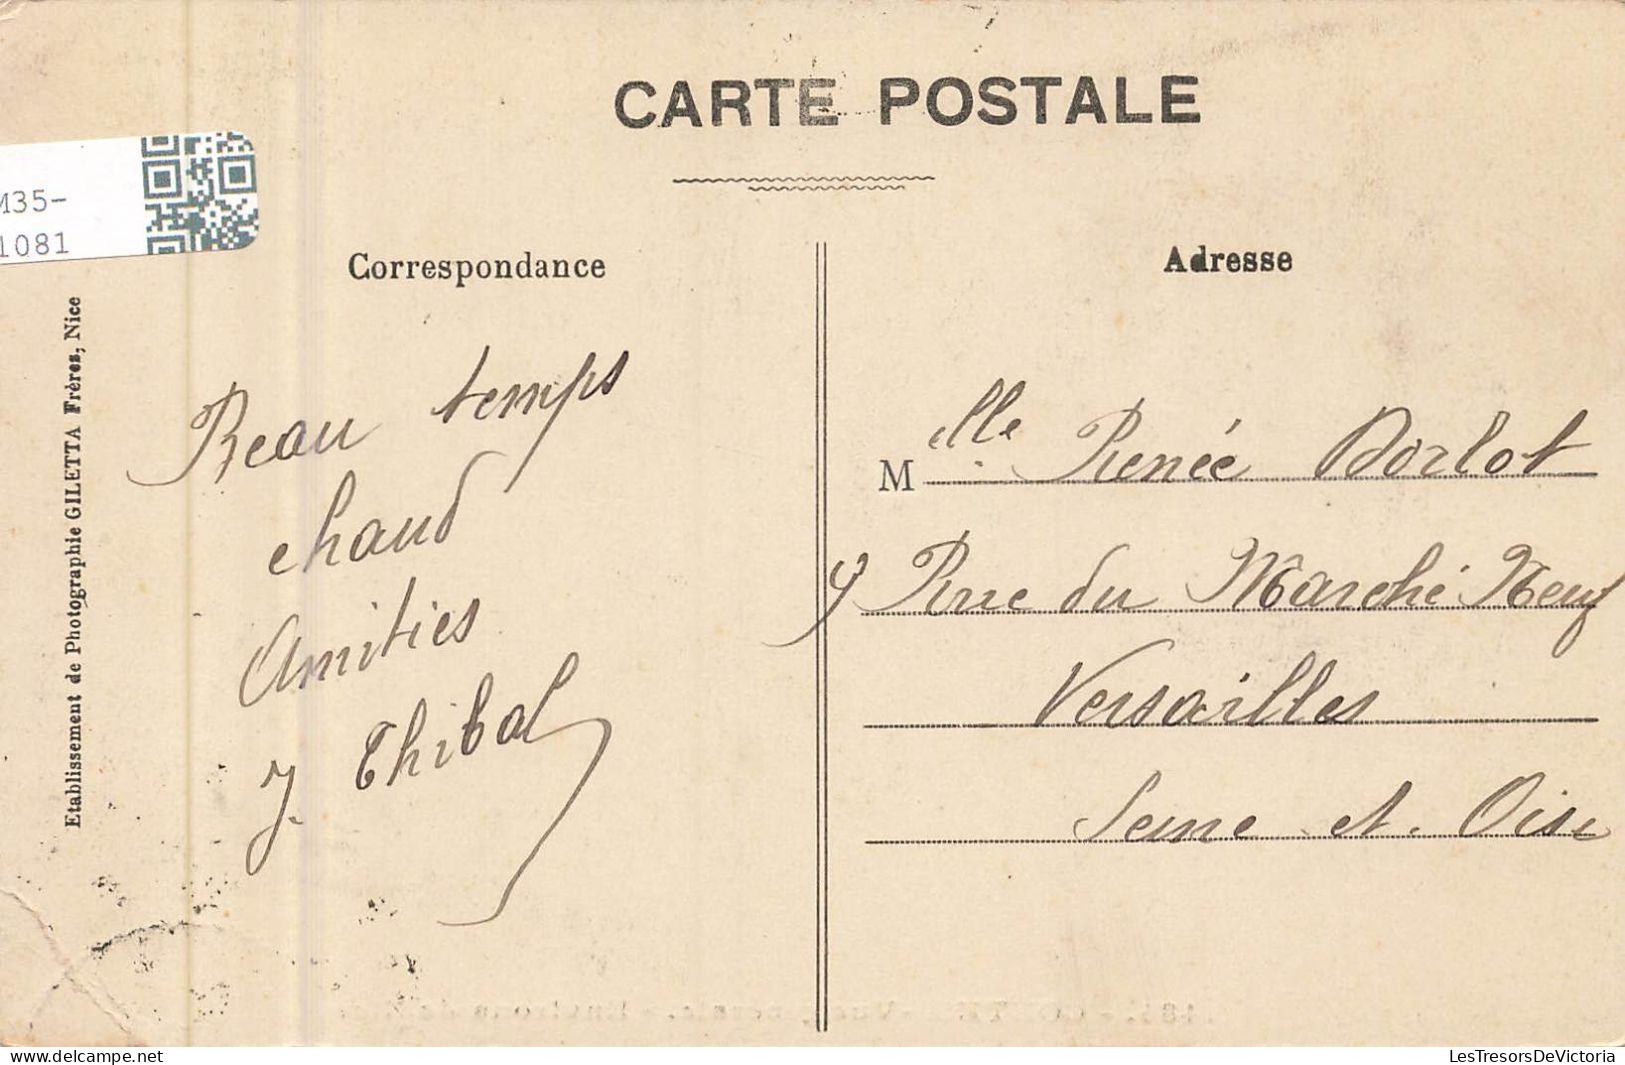 CARTE POSTALE
M35-
1081
Correspondance
Adresse
Etablissement de Photographie GILETTA Frères, Nice
Beau temps
chaud
Amitiés
J. Thibal
Mlle Renée Borlot
9 Rue du Marché Neuf
Versailles
Seine et Oise
delcampe.net
LesTresorsDeVictoria